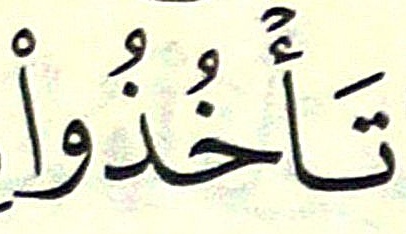 تَأۡخُذُواْ